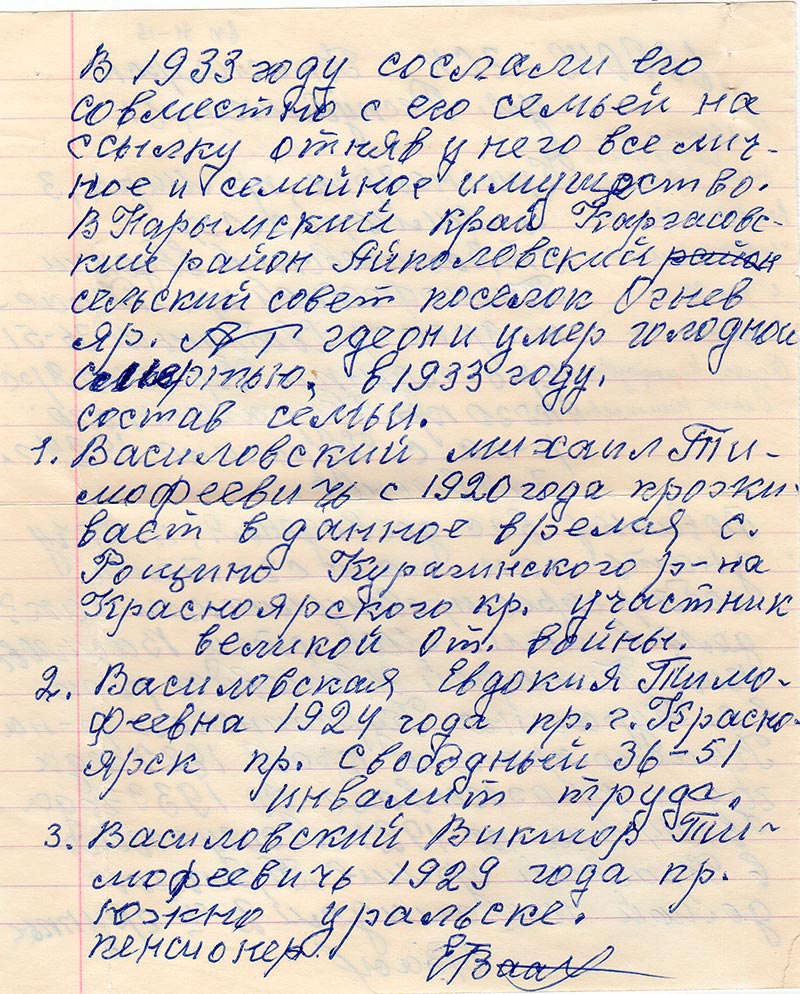 В 1933 году сослали его
совместно с его семьей на
ссылку отняв у него все лич-
ное и семейное имущество.
В Нарымский край Каргасовс-
кий район Айполовский район
сельский совет поселок Огнев
яр. где он и умер голодной
смертью, в 1933 году.
состав семьи.
1. Василовский михаил Ти-
мофеевичь с 1920 года прожи-
вает в данное время с.
Рощино Курагинского р-на
Красноярского кр. участник
великой От. войны.
2. Василовская Евдокия Тимо-
феевна 1924 года пр. г. Красно-
ярск пр. Свободный 36-51
инвалит труда.
3. Василовский Виктор Ти-
мофеевичь 1929 года пр.
южно уральске.
пенсионер.